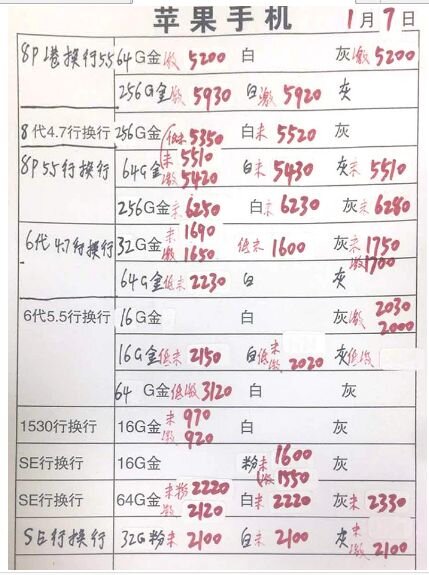 苹果手机 1月7日
8P 港换行55 64G金激5200 白 灰激5200
256G金激5930 白激5920 灰
8代4.7行换行 256G金低未5350 白未5520 灰
8P 55行换行 64G金未5510 激5420 白未5430 灰未5510
256G金未6250 白未6230 灰未6280
6代4.7行换行 32G金未1690 激1650 低未1600 灰未1750 激1700
64G金低未2230 白 灰
6代5.5行换行 16G金 白 灰激2030 2000
16G金低未2150 白低未激2020 灰低激
64 G金低激3120 白 灰
1530行换行 16G金未970 激920 白 灰
SE行换行 16G金 粉未1600 激1550 灰
SE行换行 64G金未粉2220 激2120 白未2220 灰未2330
SE行换行 32G粉未2100 白未2100 灰未激2100